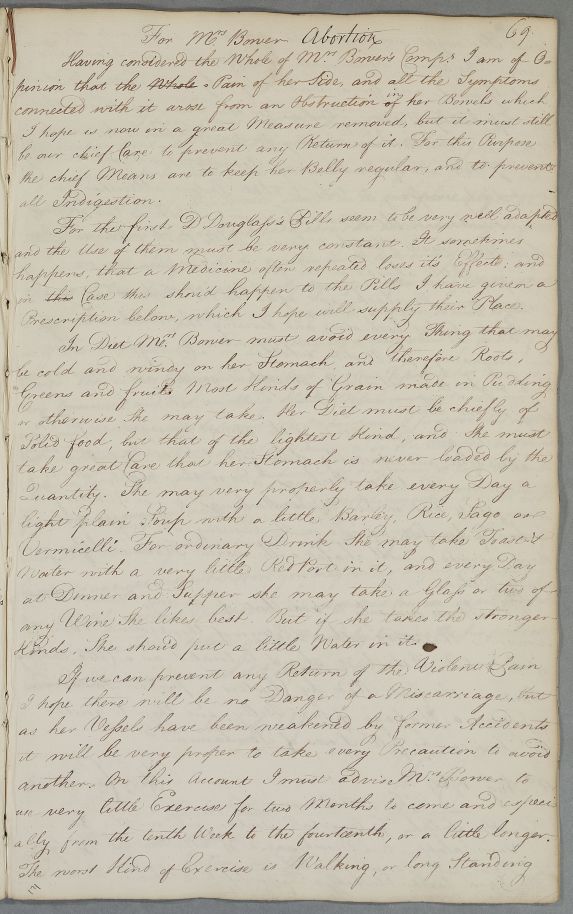 69.
For Mrs Bower Abortion
Having considered the Whole of Mrs Bower's Comps I am of O-
pinion that the Whole Pain of her Side, and all the Symptoms
connected with it arose from an Obstruction of in her Bowels which
I hope is now in a great Measure removed, but it must still
be our chief Care to prevent any Return of it. For this Purpose
the chief Means are to keep her Belly regular, and to prevent
all Indigestion.
For the first, D Douglass's Pills seem to be very well adapted
and the Use of them must be very constant. It sometimes
happens, that a Medicine often repeated loses its Effects; and
in this Case this should happen to the Pills I have given a
Prescription below, which I hope will supply their Place.
In Diet Mrs Bower must avoid every Thing that may
be cold and windy on her Stomach and therefore Roots,
Greens and fruits Most Kinds of Grain made in Pudding
or otherwise She may take. Her Diet must be chiefly of
Solid food, but that of the lightest Kind, and She must
take great Care that her Stomach is never loaded by the
Quantity. She may very properly take every Day a
light plain Soup with a little Barley, Rice, Sago or
Vermicelli. For ordinary Drink She may take Toasted
Water with a very little Red Port in it, and every Day
at Dinner and Supper she may take a Glass or two of
any Wine She likes best. But if she takes the stronger
Kinds, She should put a little Water in it.
If we can prevent any Return of the Violent Pain
I hope there will be no Danger of a Miscarriage, but
as her Vessels have been weakened by former Accidents
it will be very proper to take every Precaution to avoid
another. On this Account I must advise Mrs Bower to
use very little Exercise for two Months to come and especi
ally from the tenth Week to the fourteenth, or a little longer.
The worst Kind of Exercise is Walking, or long Standing